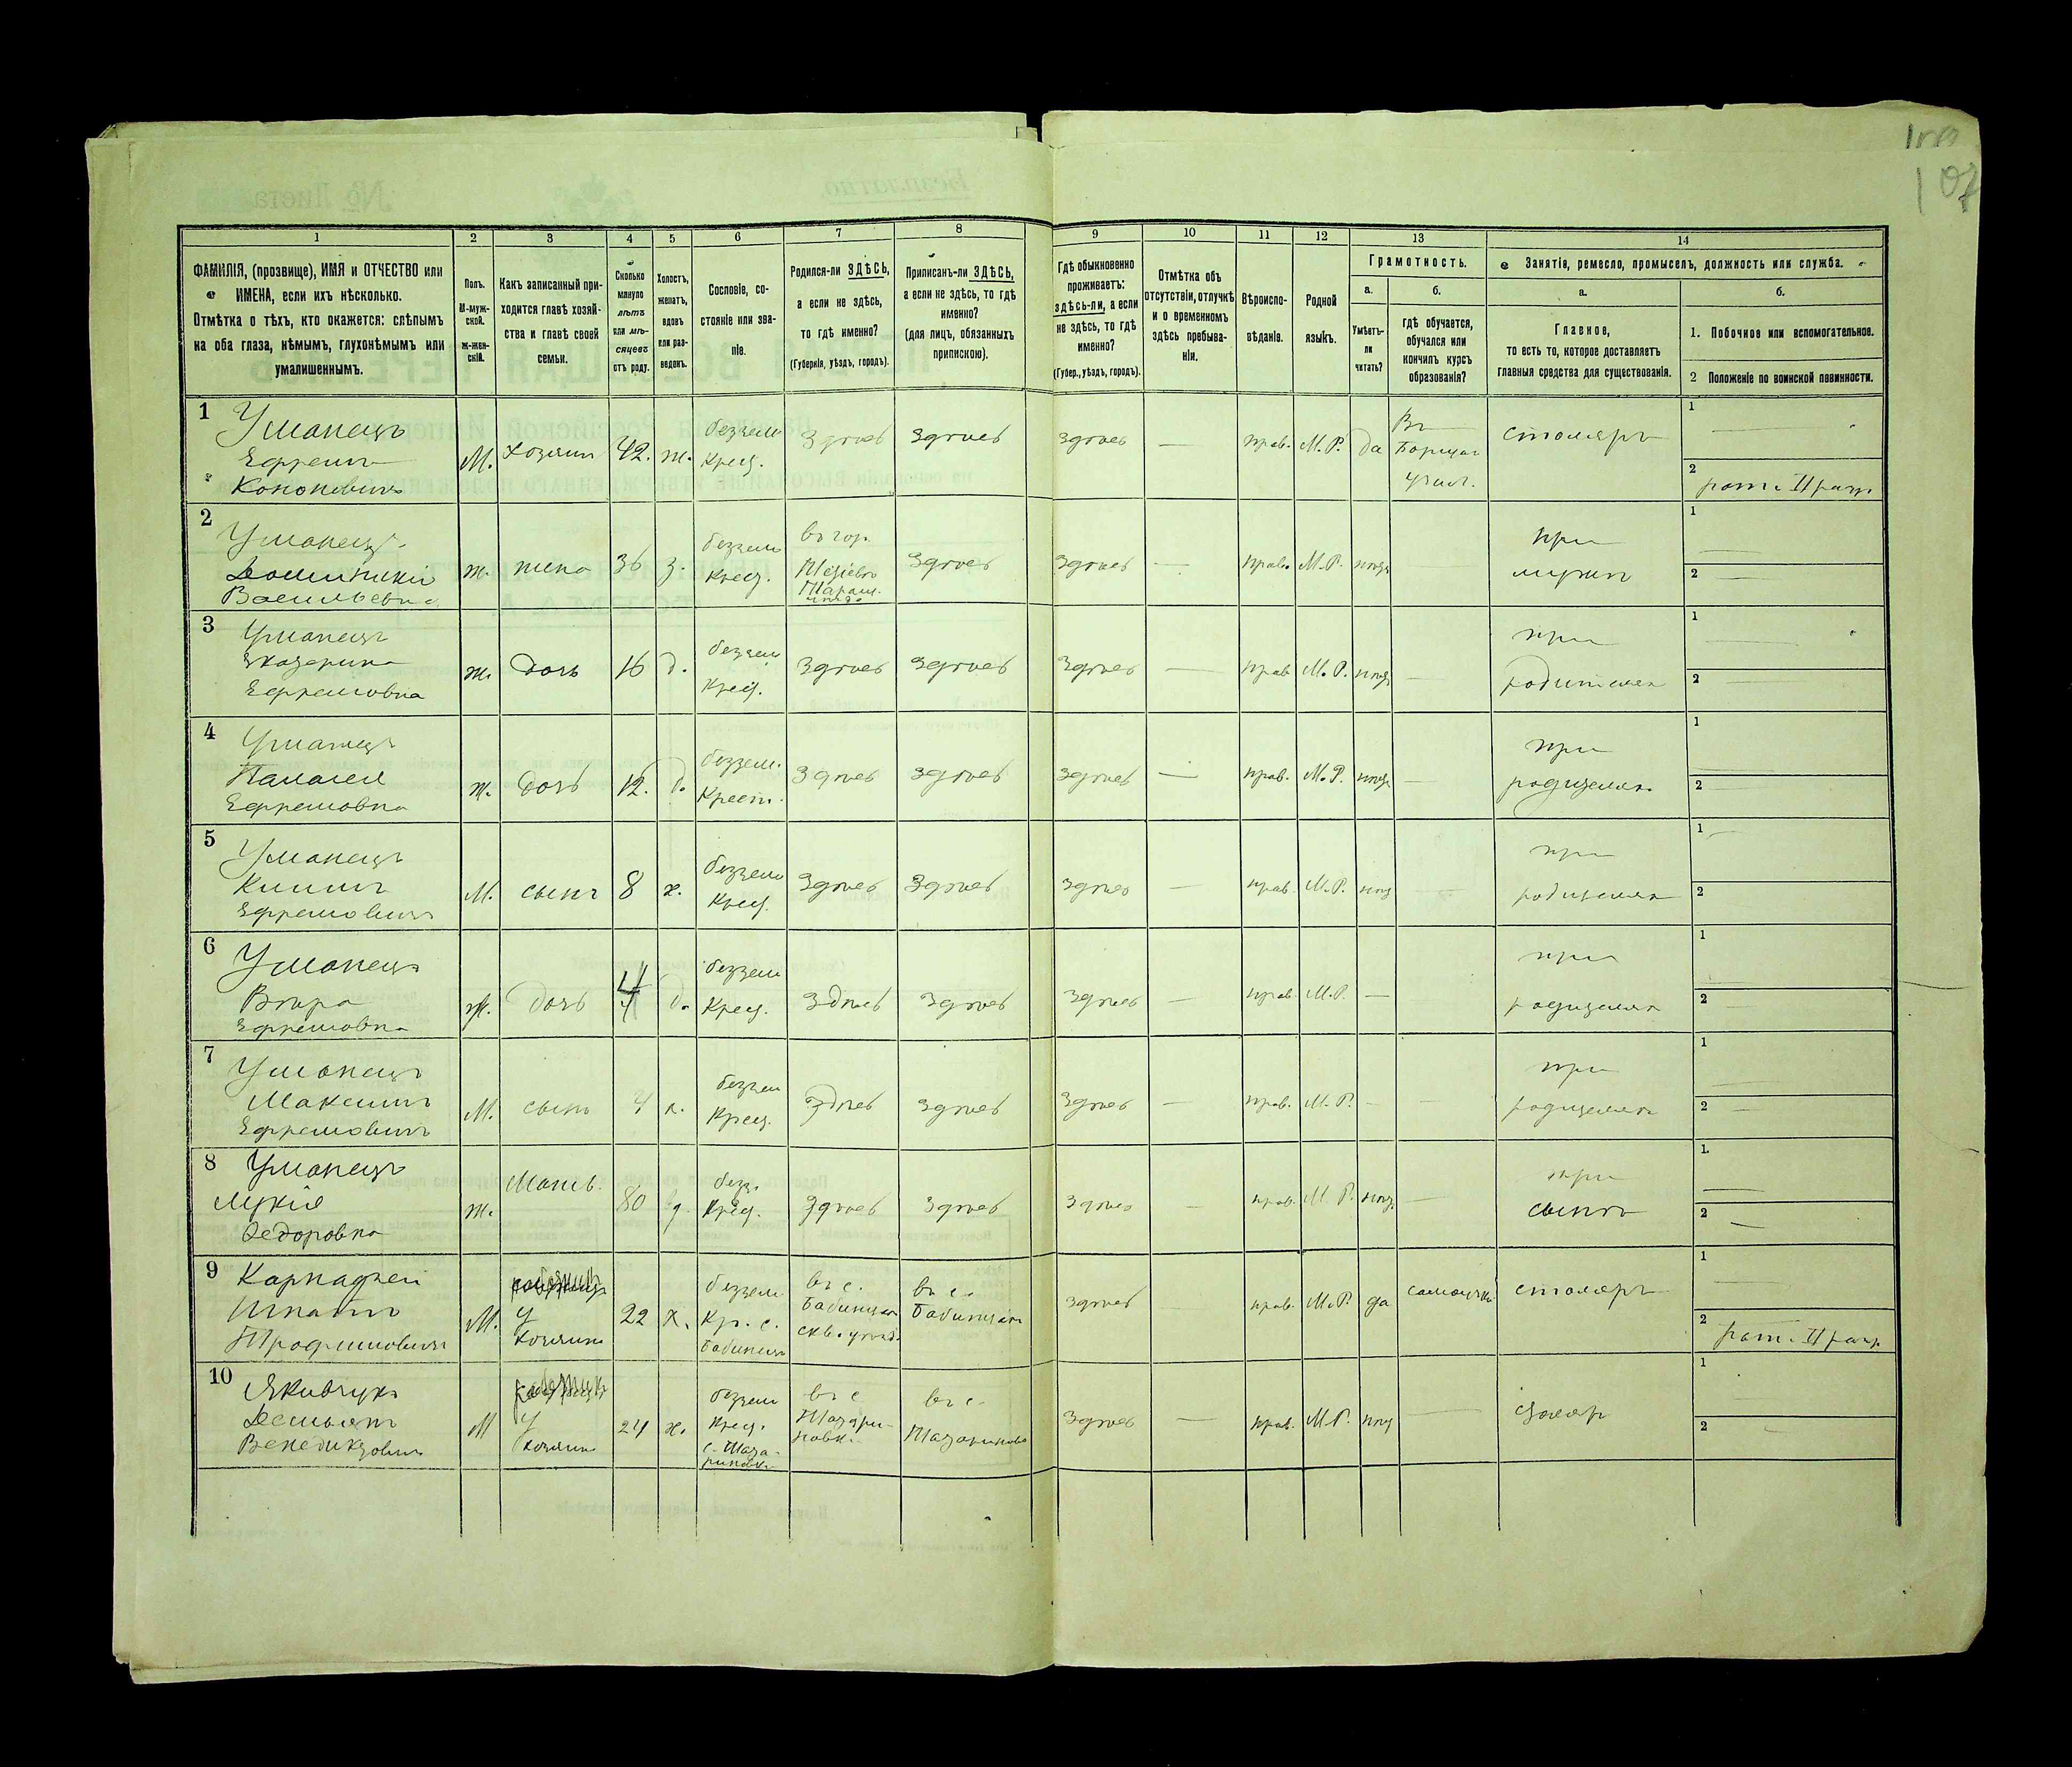 107
1 2 3 4 5 6 7 8 9 10 11 12 13 14
ФАМИЛІЯ, (прозвище), ИМЯ и ОТЧЕСТВО или
ИМЕНА, если ихъ нѣсколько.
Отмѣтка о тѣхъ, кто окажется: слѣпымъ
на оба глаза, нѣмымъ, глухонѣмымъ или
умалишеннымъ.
Полъ.
М-муж-
ской.
ж-жен-
скій.
Какъ записанный при-
ходится главѣ хозяй-
ства и главѣ своей
семьи.
Сколько
минуло
лѣтъ
или мѣ-
сяцевъ
отъ роду.
Холостъ,
женатъ,
вдовъ
или раз-
веденъ.
Сословіе, со-
стояніе или зва-
ніе.
Родился-ли ЗДѢСЬ,
а если не здѣсь,
то гдѣ именно?
(Губернія, уѣздъ, городъ).
Приписанъ-ли ЗДѢСЬ,
а если не здѣсь, то гдѣ
именно?
(для лицъ, обязанныхъ
припискою).
Гдѣ обыкновенно
проживаетъ:
здѣсь-ли, а если
не здѣсь, то гдѣ
именно?
(Губер., уѣздъ, городъ).
Отмѣтка объ
отсутствіи, отлучкѣ
и о временномъ
здѣсь пребыва-
ніи.
Вѣроиспо-
вѣданіе.
Родной
языкъ.
Грамотность.
а.
Умѣетъ-
ли
читать?
б.
гдѣ обучается,
обучался или
кончилъ курсъ
образованія?
Занятіе, ремесло, промыселъ, должность или служба.
а.
Главное,
то есть то, которое доставляетъ
главныя средства для существованія.
б.
1. Побочное или вспомогательное.
2 Положеніе по воинской повинности.
1 Уманецъ
Ефремъ
Кононовичъ
М. хозяинъ 42. ж. беззем. крест. здѣсь здѣсь здѣсь — прав. М.Р. да
Въ
учил.
столяръ
1 —
2 рат. II разр.
2 Уманецъ
Васильевна
ж. жена 36 з. беззем. крест.
въ гор.
здѣсь здѣсь — прав. М.Р. нѣтъ —
при
мужѣ
1 —
2 —
3 Уманецъ
Екатерина
Ефремовна
ж. дочь 16 д. беззем. крест. здѣсь здѣсь здѣсь — прав. М.Р. нѣтъ —
при
родителяхъ
1 —
2 —
4 Уманецъ
Палагея
Ефремовна
ж. дочь 12. д. беззем. крест. здѣсь здѣсь здѣсь — прав. М.Р. нѣтъ —
при
родителяхъ
1 —
2 —
5 Уманецъ
Ефремовичъ
М. сынъ 8 х. беззем. крест. здѣсь здѣсь здѣсь — прав. М.Р. нѣтъ —
при
родителяхъ
1 —
2 —
6 Уманецъ
Вѣра
Ефремовна
ж. дочь 4 д. беззем. крест. здѣсь здѣсь здѣсь — прав. М.Р. —
при
родителяхъ
1 —
2 —
7 Уманецъ
Максимъ
Ефремовичъ
М. сынъ 4 х. беззем. крест. здѣсь здѣсь здѣсь — прав. М.Р. — —
при
родителяхъ
1 —
2 —
8 Уманецъ
Лукія
Федоровна
ж. Мать. 80 вд. безз. крест. здѣсь здѣсь здѣсь — прав. М.Р. нѣтъ —
при
сынѣ
1. —
2 —
9
Игнатъ
Трофимовичъ
М. у хозяина 22 х. беззем. кр. с.
въ с.
скв. уѣзд.
въ с.
здѣсь прав. М.Р. да самоучка столяръ
1 —
2 рат. II разр.
10 Якивчукъ
Демьянъ
Венедиктовичъ
М у хозяина 24 х. беззем. крест.
въ с
въ с.
здѣсь — прав. М.Р. нѣтъ — столяр
1 —
2 —